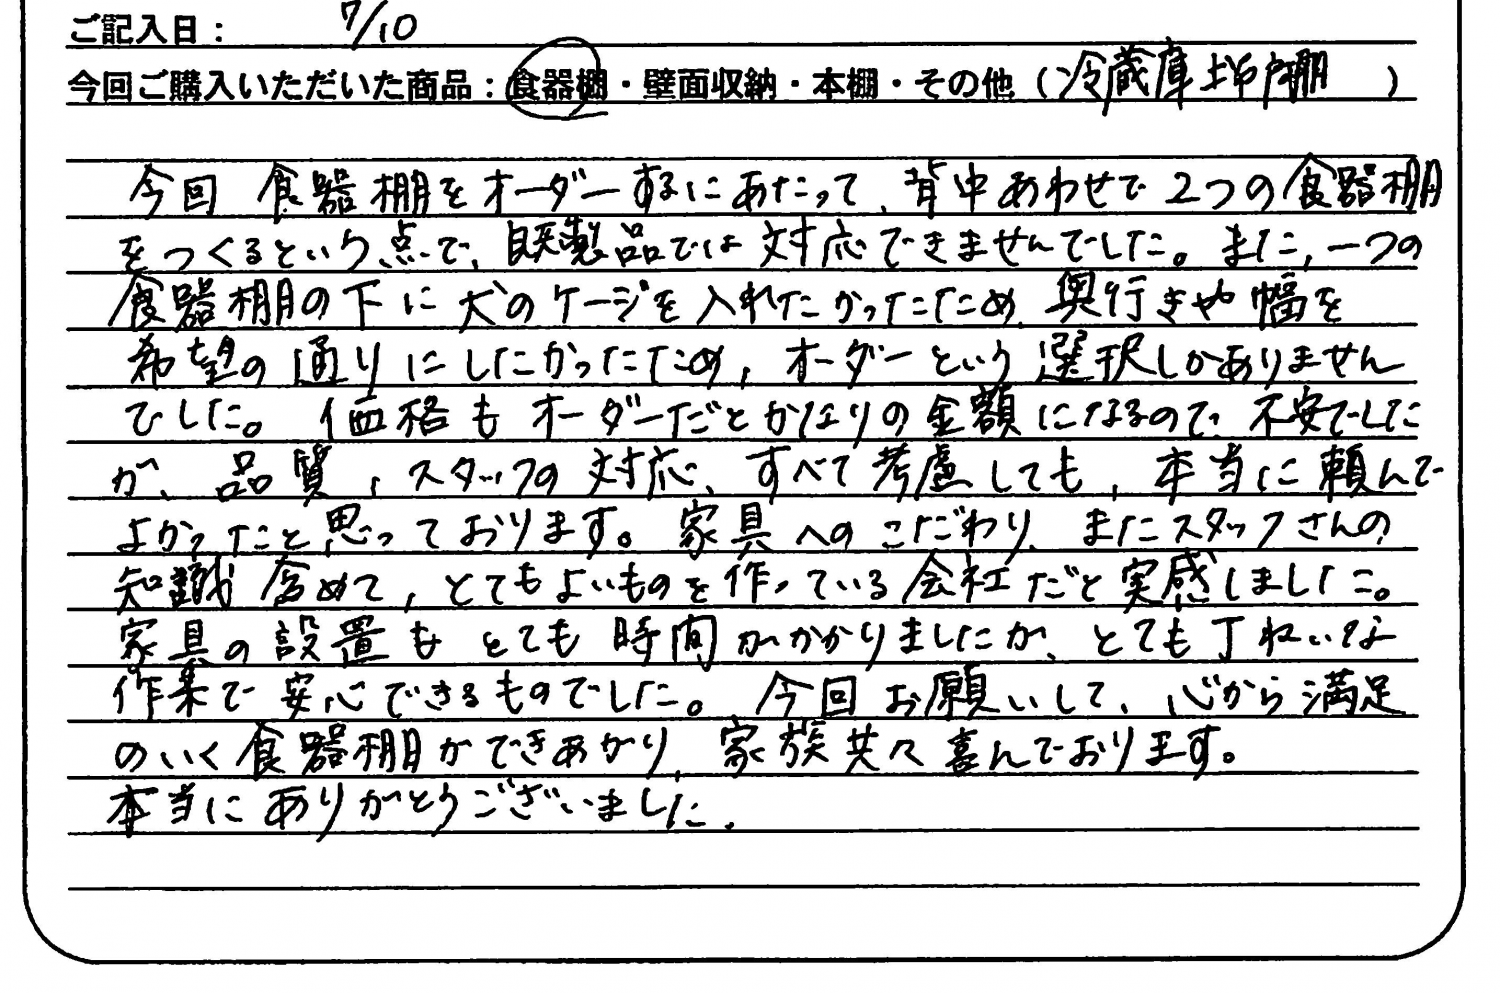 ご記入日： 7/10
今回ご購入いただいた商品：食器棚・壁面収納・本棚・その他（冷蔵庫上部棚）
今回 食器棚をオーダーするにあたって、背中あわせで2つの食器棚
をつくるという点で、既製品では対応できませんでした。また、一つの
食器棚の下に犬のケージを入れたかったため、奥行きや幅を
希望の通りにしたかったため、オーダーという選択しかありません
でした。価格もオーダーだとかなりの金額になるので、不安でした
が、品質、スタッフの対応、すべて考慮しても、本当に頼んで
よかったと思っております。家具へのこだわり、またスタッフさんの
知識含めて、とてもよいものを作っている会社だと実感しました。
家具の設置もとても時間がかかりましたが、とても丁ねいな
作業で安心できるものでした。今回お願いして、心から満足
のいく食器棚ができあがり、家族共々喜んでおります。
本当にありがとうございました.